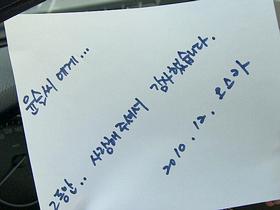 윤손씨 에게...
그동안.. 사랑해 주셔서 감사했습니다.
2010. 12. 오스카